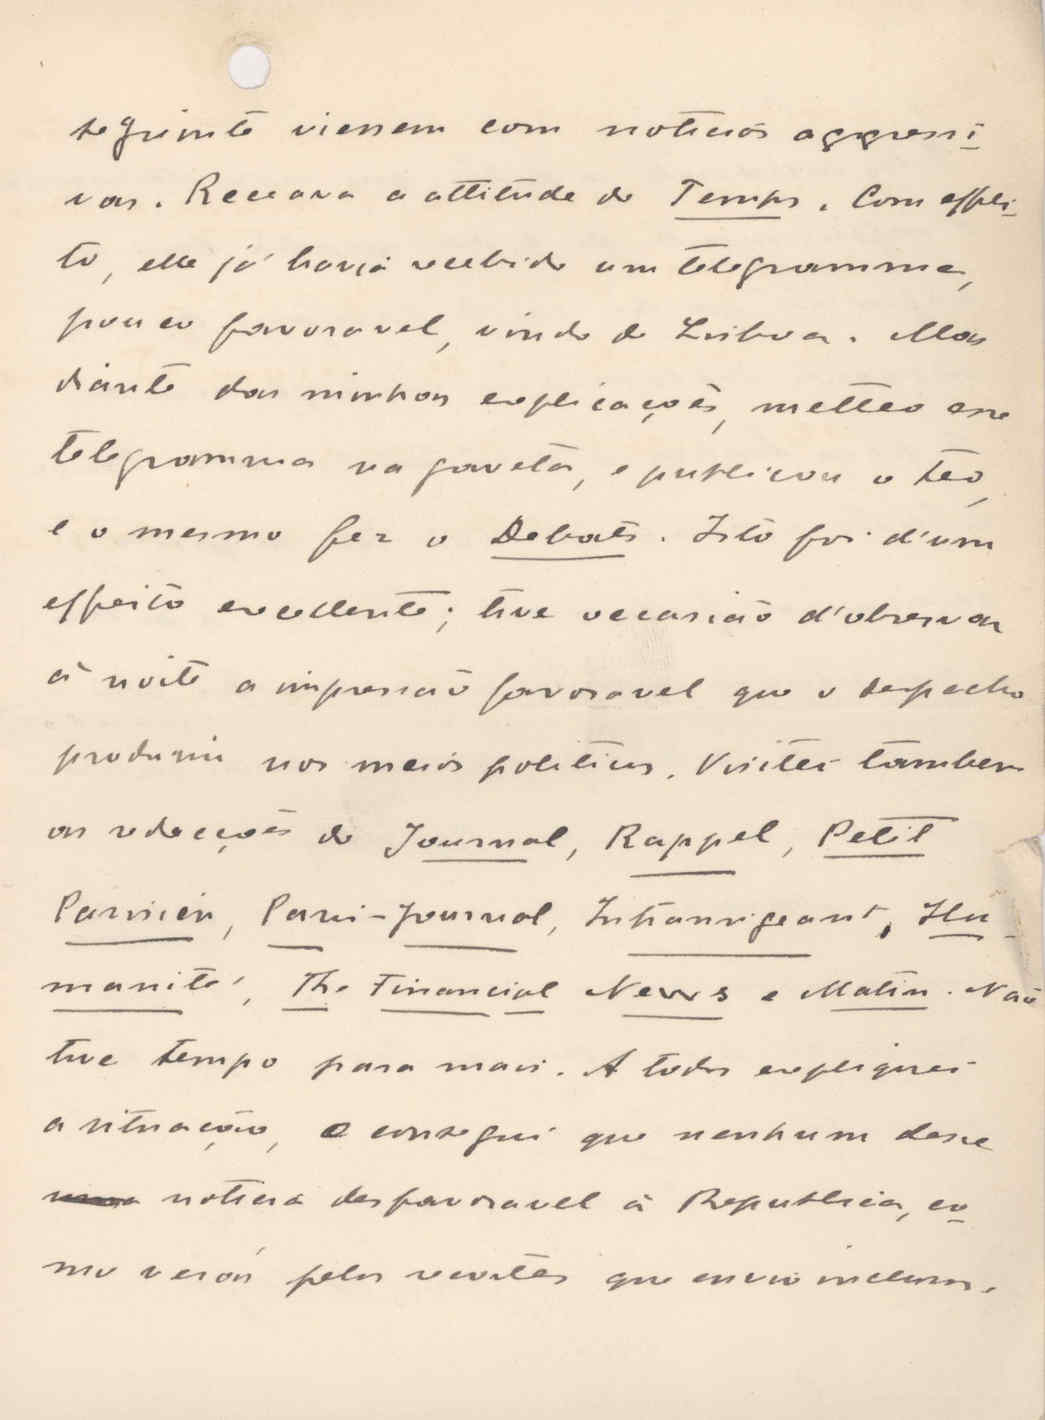 seguinte viessem com noticias aggressi-
vas. Receava a attitude do Temps. Com effei-
to, elle já havia recebido um telegramma,
pouco favoravel, vindo de Lisboa. Mas
diante das minhas explicações, metteo esse
telegramma na gaveta, e publicou o teo,
e o mesmo fez o Debats. Isto foi d'um
effeito excellente; tive occasião d'observar
á noite a impressão favoravel que o despacho
produziu nos meios politicos. Visitei tambem
as redacções do Journal, Rappel, Petit
Parisien, Paris-Journal, Intransigeant, Hu-
manité, The Financial News e Matin. Não
tive tempo para mais. A todos expliquei
a situação, e consegui que nenhum desse
uma noticia desfavoravel á Republica, co-
mo verás pelos recortes que envio inclusos.